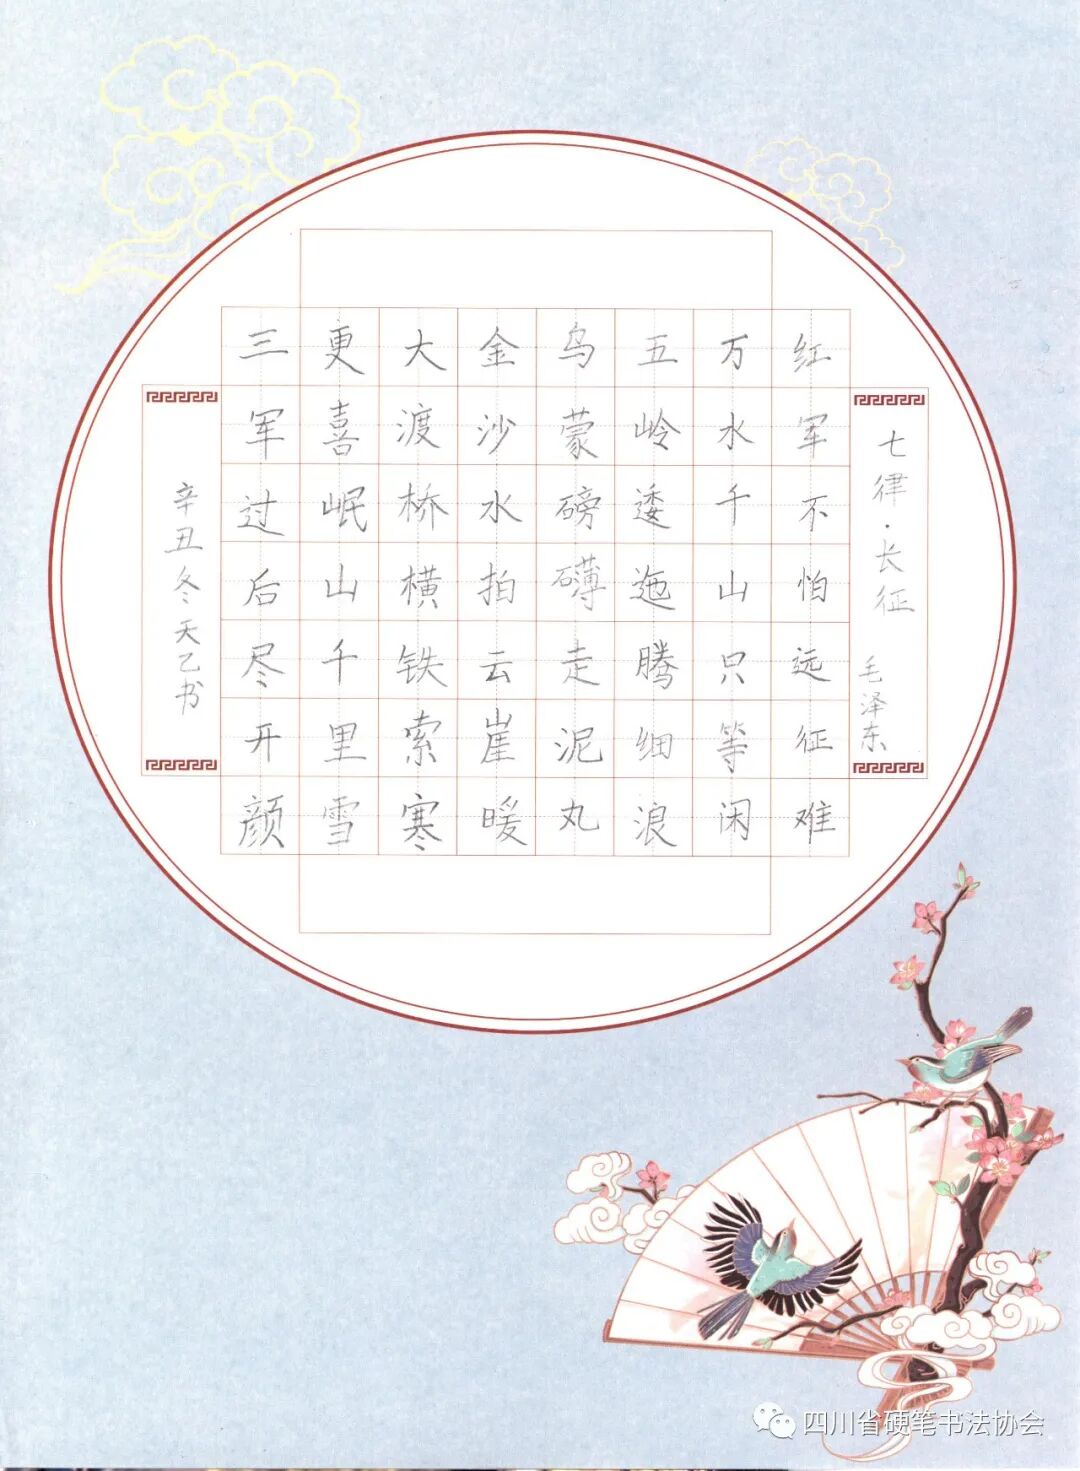 七律·长征
毛泽东
红军不怕远征难
万水千山只等闲
五岭逶迤腾细浪
乌蒙磅礴走泥丸
金沙水拍云崖暖
大渡桥横铁索寒
更喜岷山千里雪
三军过后尽开颜
辛丑冬天乙书
四川省硬笔书法协会